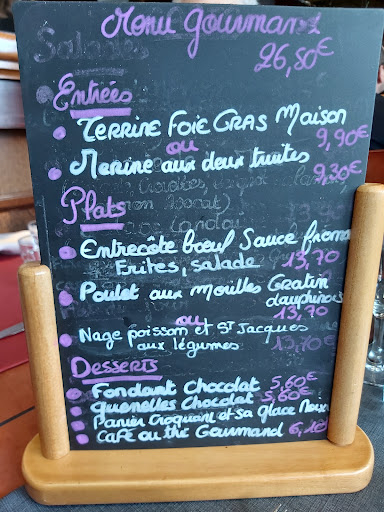 Menu gourmand
26,80€
Salades
Entrées
TERRINE FOIE GRAS Maison
ou 9,90€
Marine aux deux truites
9,30€
Plats
Entrecôte bœuf Sauce froma
Frites, salade 13,70
Poulet aux morilles Gratin
dauphinois
ou 13,70
Nage poisson et St Jacques
aux légumes 13,70€
DESSERTS
Fondant chocolat 5,60€
quenelles chocolat 5,60€
Panier croquant et sa glace
Café ou thé Gourmand 6,10